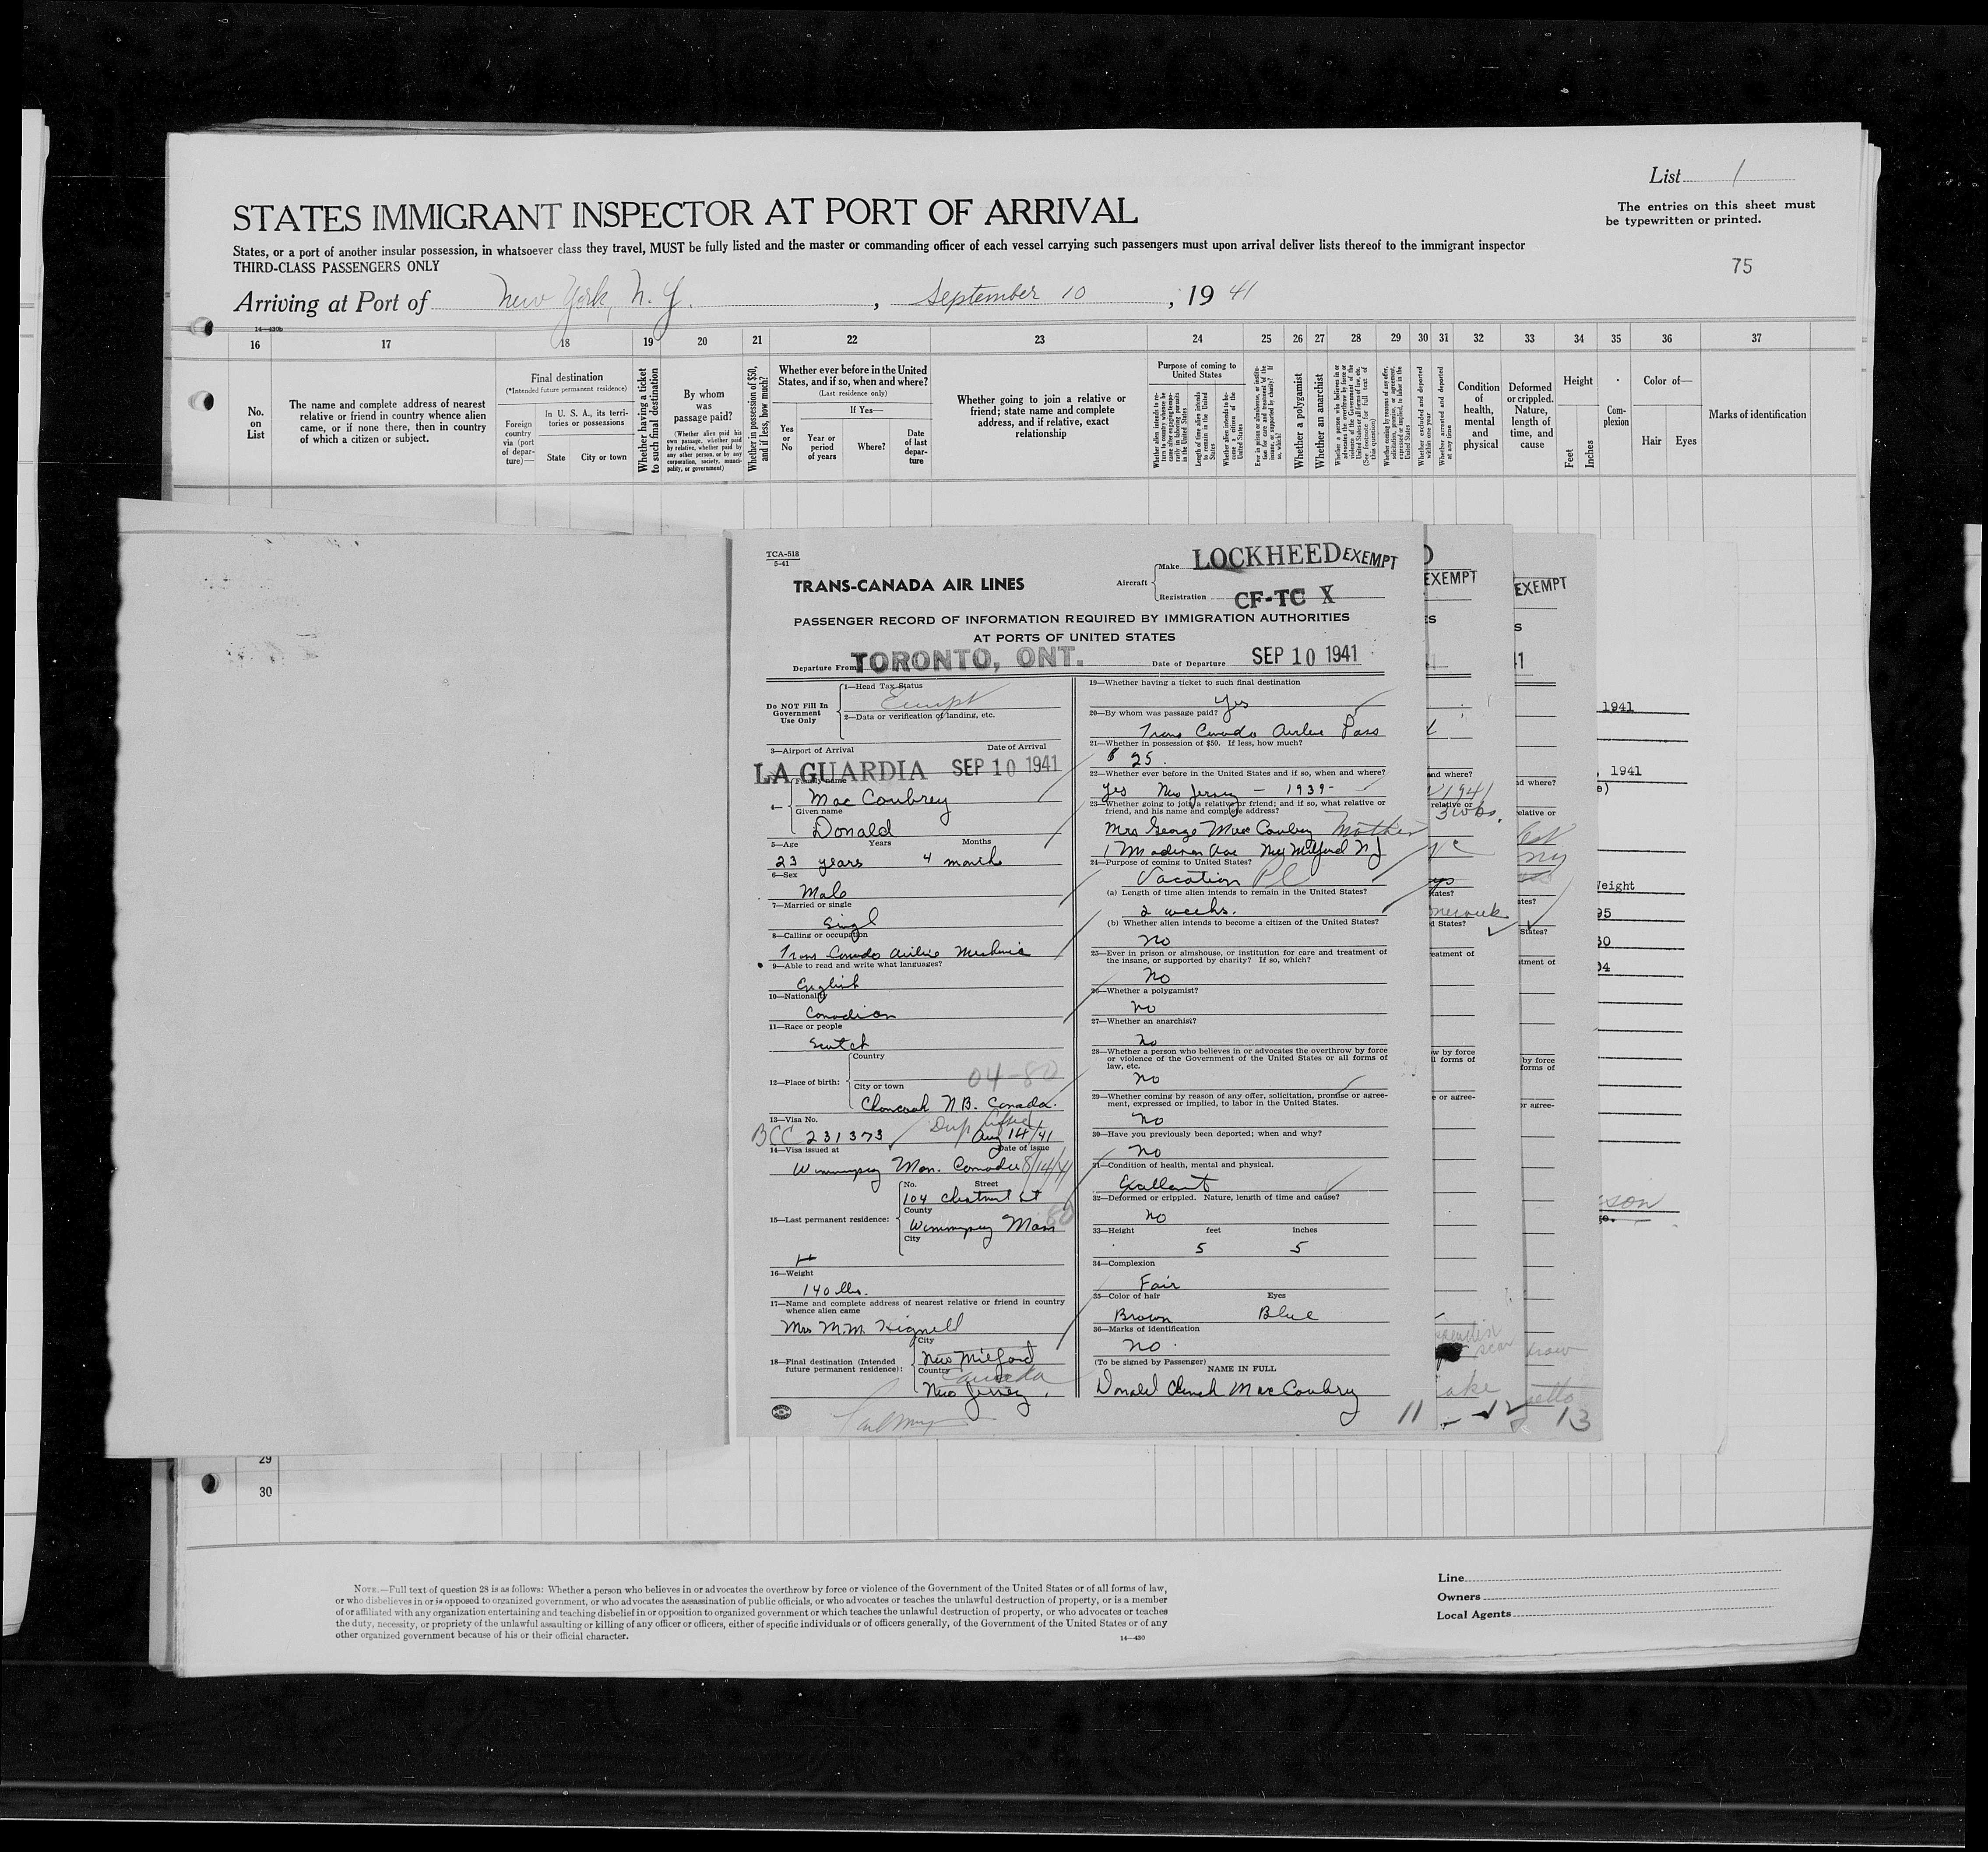 List 1
STATES IMMIGRANT INSPECTOR AT PORT OF ARRIVAL
The entries on this sheet must
be typewritten or printed.
States, or a port of another insular possession, in whatsoever class they travel, MUST be fully listed and the master or commanding officer of each vessel carrying such passengers must upon arrival deliver lists thereof to the immigrant inspector
THIRD-CLASS PASSENGERS ONLY
75
Arriving at Port of New York, N. Y. , September 10 , 19 41
14—430b
16 17 18 19 20 21 22 23 24 25 26 27 28 29 30 31 32 33 34 35 36 37
No.
on
List
The name and complete address of nearest
relative or friend in country whence alien
came, or if none there, then in country
of which a citizen or subject.
Final destination
(*Intended future permanent residence)
Foreign
country
via (port
of depar-
ture)—
In U. S. A., its terri-
tories or possessions
State City or town
Whether having a ticket
to such final destination
By whom
was
passage paid?
(Whether alien paid his
own passage, whether paid
by relative, whether paid by
any other person, or by any
corporation, society, munici-
pality, or government)
Whether in possession of $50,
and if less, how much?
Whether ever before in the United
States, and if so, when and where?
(Last residence only)
Yes
or
No
If Yes—
Year or
period
of years
Where?
Date
of last
depar-
ture
Whether going to join a relative or
friend; state name and complete
address, and if relative, exact
relationship
Purpose of coming to
United States
Whether a polygamist
Whether an anarchist
Condition
of
health,
mental
and
physical
Deformed
or crippled.
Nature,
length of
time, and
cause
Height
Feet
Inches
Com-
plexion
Color of—
Hair Eyes
Marks of identification
TCA-518
5-41
TRANS-CANADA AIR LINES
Aircraft
Make LOCKHEED EXEMPT
Registration CF-TC X
PASSENGER RECORD OF INFORMATION REQUIRED BY IMMIGRATION AUTHORITIES
AT PORTS OF UNITED STATES
Departure From TORONTO, ONT. Date of Departure SEP 10 1941
Do NOT Fill In
Government
Use Only
1—Head Tax Status
Exempt
2—Data or verification of landing, etc.
3—Airport of Arrival Date of Arrival
LA GUARDIA SEP 10 1941
4— Family name
Mac Coubrey
Given name
Donald
5—Age Years Months
23 years 4 month
6—Sex
Male
7—Married or single
Singl
8—Calling or occupation
Trans Canada Airline Mechanic
9—Able to read and write what languages?
English
10—Nationality
Canadian
11—Race or people
Scotch
12—Place of birth:
Country
04-80
City or town
N.B. Canada.
13—Visa No.
BCC 231373 Aug 14/41
14—Visa issued at Date of issue
Winnipeg Man. Canada 8/14/41
15—Last permanent residence:
No. Street
104 Chestnut St
County
Winnipeg Man
80
City
16—Weight
140 lbs.
17—Name and complete address of nearest relative or friend in country
whence alien came
Mrs M.M. Hignell
18—Final destination (Intended
future permanent residence):
City
New Milford
Country
Canada
New Jersey
19—Whether having a ticket to such final destination
Yes
20—By whom was passage paid?
Trans Canada Airline Pass
21—Whether in possession of $50. If less, how much?
$ 25.
22—Whether ever before in the United States and if so, when and where?
Yes New Jersey — 1939-
23—Whether going to join a relative or friend; and if so, what relative or
friend, and his name and complete address?
Mrs George Mac Coubrey Mother
1 Madison Ave New Milford N J
24—Purpose of coming to United States?
Vacation
(a) Length of time alien intends to remain in the United States?
2 weeks.
(b) Whether alien intends to become a citizen of the United States?
No
25—Ever in prison or almshouse, or institution for care and treatment of
the insane, or supported by charity? If so, which?
No
26—Whether a polygamist?
No
27—Whether an anarchist?
No
28—Whether a person who believes in or advocates the overthrow by force
or violence of the Government of the United States or all forms of
law, etc.
No
29—Whether coming by reason of any offer, solicitation, promise or agree-
ment, expressed or implied, to labor in the United States.
No
30—Have you previously been deported; when and why?
No
31—Condition of health, mental and physical.
Excellent
32—Deformed or crippled. Nature, length of time and cause?
No
33—Height feet inches
5 5
34—Complexion
Fair
35—Color of hair Eyes
Brown Blue
36—Marks of identification
No.
(To be signed by Passenger)
NAME IN FULL
Donald Mac Coubrey
11
12
13
EXEMPT
EXEMPT
1941
, 1941
29
30
NOTE.—Full text of question 28 is as follows: Whether a person who believes in or advocates the overthrow by force or violence of the Government of the United States or of all forms of law,
or who disbelieves in or is opposed to organized government, or who advocates the assassination of public officials, or who advocates or teaches the unlawful destruction of property, or is a member
of or affiliated with any organization entertaining and teaching disbelief in or opposition to organized government or which teaches the unlawful destruction of property, or who advocates or teaches
the duty, necessity, or propriety of the unlawful assaulting or killing of any officer or officers, either of specific individuals or of officers generally, of the Government of the United States or of any
other organized government because of his or their official character.
14—430
Line
Owners
Local Agents